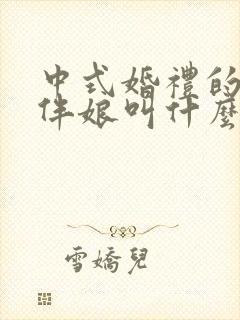 中式婚禮的
伴娘叫什麼
雪嬌兒